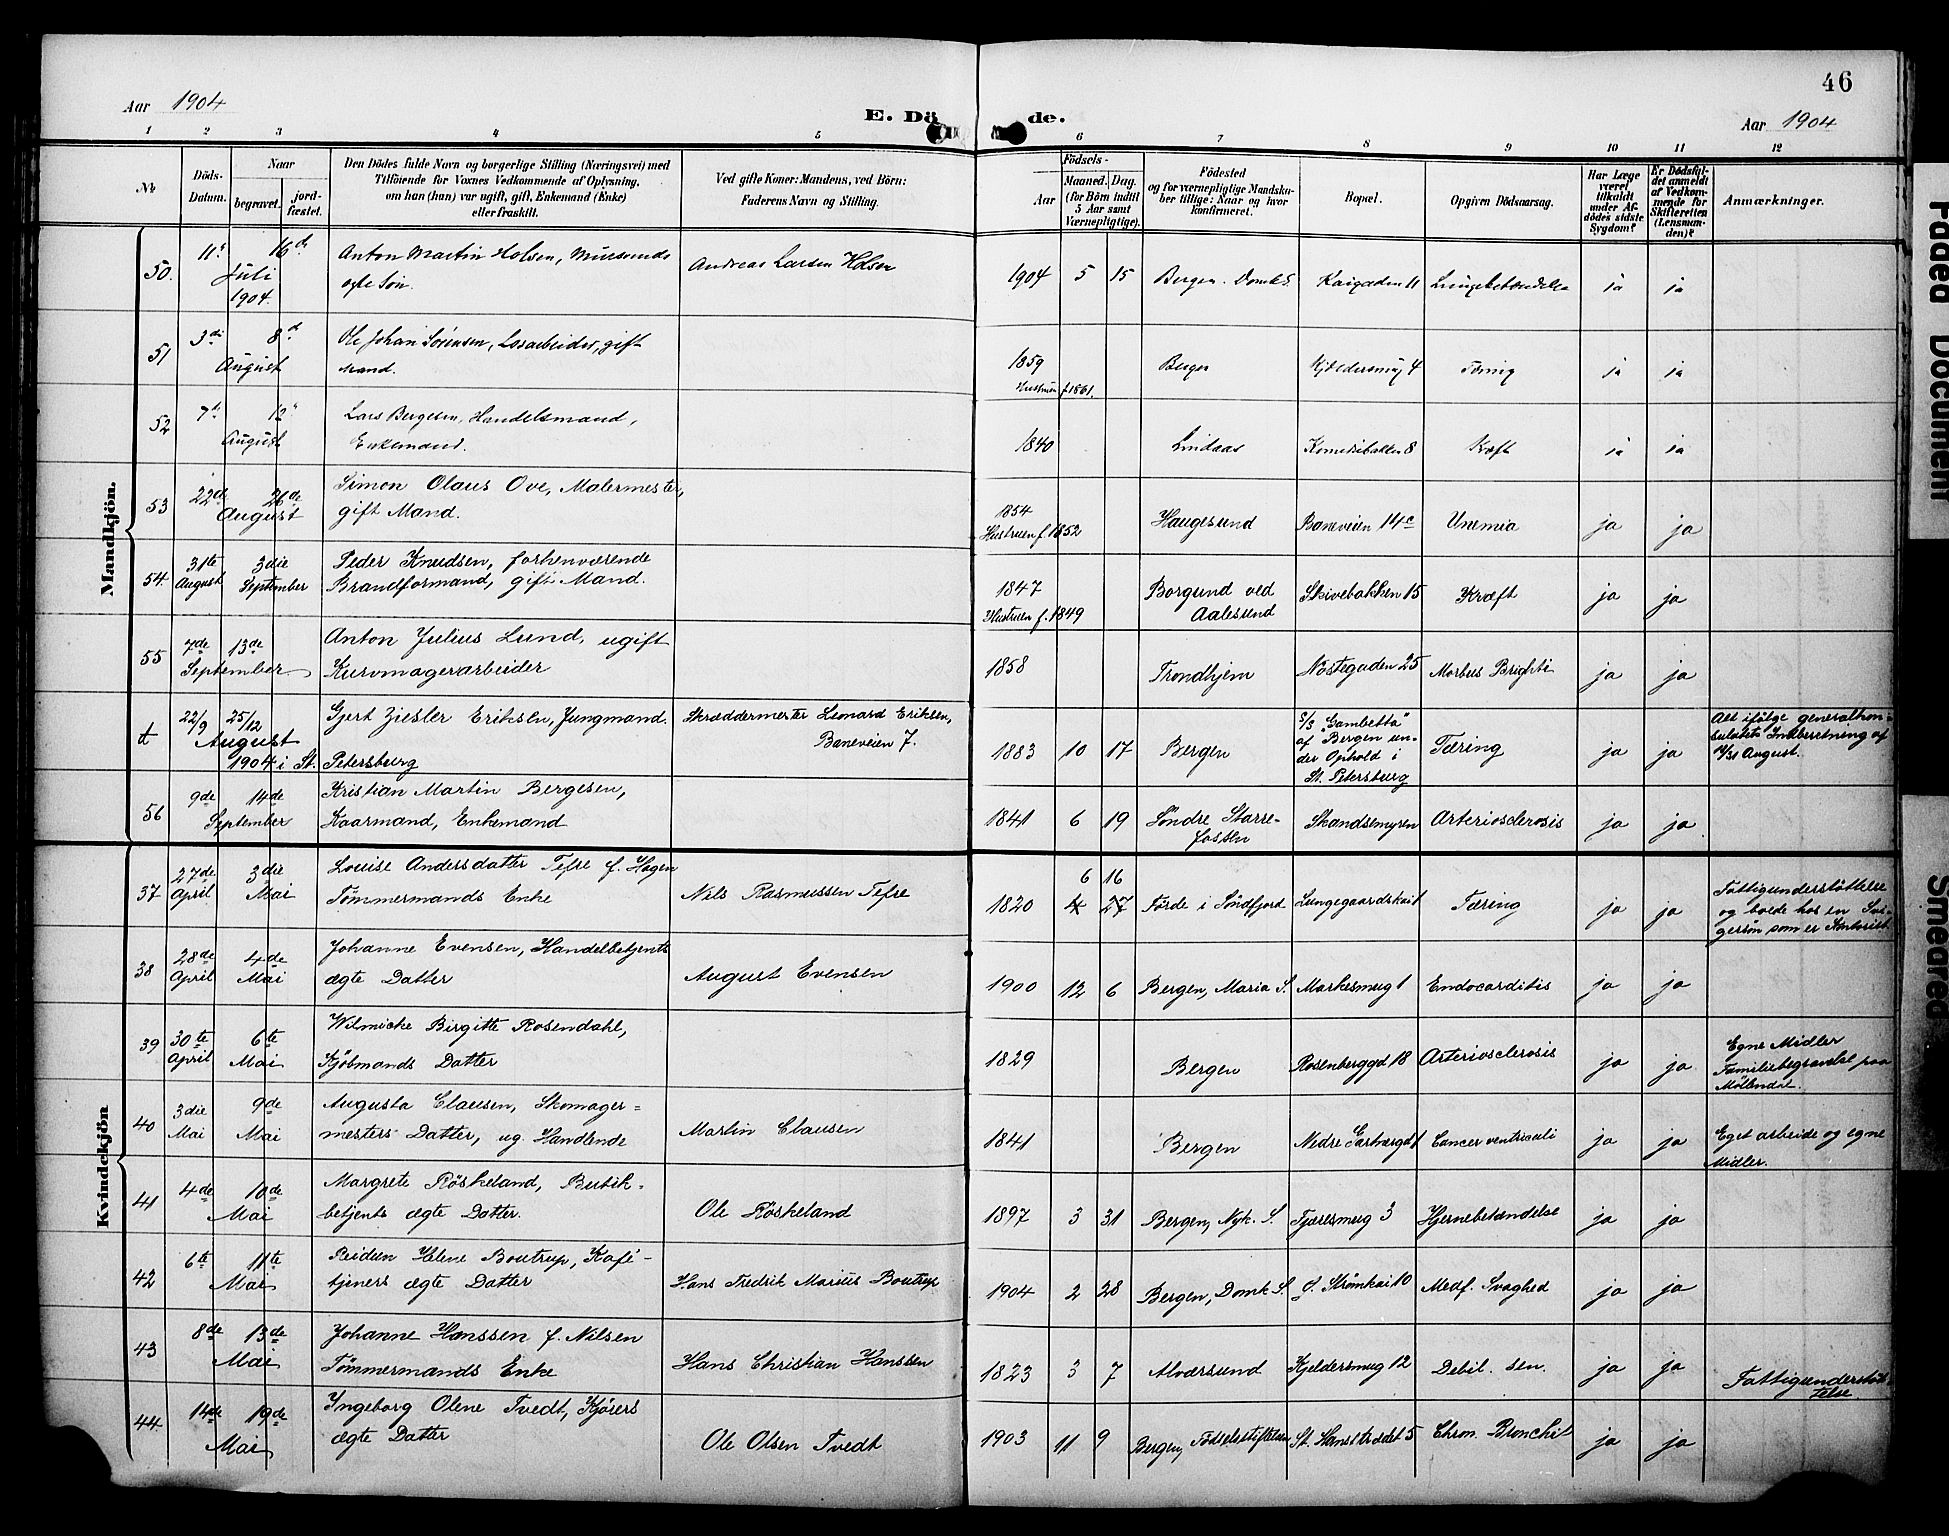 46
Aar 1904
E. Dö de.
Aar 1904
1 2 3 4 5 6 7 8 9 10 11 12
№
Döds-
Datum.
Naar
begravet.
jord-
fæstet.
Den Dödes fulde Navn og borgerlige Stilling (Næringsvei) med
Tilföiende for Voxnes Vedkommende af Oplysning,
om han (hun) var ugift, gift, Enkemand (Enke)
eller fraskilt.
Ved gifte Koner: Mandens, ved Börn:
Faderens Navn og Stilling.
Födsels-
Aar
Maaned. Dag.
(for Börn indtil
5 Aar samt
Værnepligtige).
Födested
og for værnepligtige Mandsku-
ber tillige: Naar og hvor
konfirmeret.
Bopæl.
Opgiven Dödsaarsag.
Har Læge
været
tilkaldt
under Af-
dödes sidste
Sygdom?
Er Dödsfal-
det anmeldt
af Vedkom-
mende for
Skifteretten
(Lensman-
den)?
Anmærkninger.
Mandkjön.
50. 11' 16de Juli 1904. Anton Martin Holsen,
ægte Søn. Andreas Larsen Holsen 1904 5 15 Bergen. Domk S Kaigaden 11 ja ja
51 3di 8d August Ole Johan Sørensen, Løsarbeider, gift
Mand. 1859 Hustruen f. 1861. Bergen Kjeldersmug 4 Tæring ja ja
52 7de 12' August Lars Bergesen, Handelsmand,
Enkemand. 1840 Lindaas Komediebakken 8 Kræft ja ja
53 22de 26de August Simon Olaus Ove, Malermester,
gift Mand. 1854 Hustruen f. 1852 Haugesund Baneveien 14c Uremia ja ja
54. 31te August 3die September Peder Knudsen, forhenværende
Brandformand, gift Mand. 1847 Hustruen f. 1849 Borgund ved
Aalesund Skivebakken 15 Kræft ja ja
55 7de 13de September Anton Julius Lund, ugift
Kurvmagerarbeider 1858 Trondhjem Nøstegaden 25 Morbus Brighti ja ja
t 22/9 25/12 August
1904 i St. Petersburg Gjert Ziesler Eriksen, Jungmand. Skræddermester Leonard Eriksen,
Baneveien 7. 1883 10 17 Bergen S/S "Gambetta"
af Bergen un-
der Ophold i
St. Petersburg Tæring ja ja Alt ifølge generalkon-
sulatets Indberetning af
August.
56 9de 14de September Kristian Martin Bergesen,
Kaarmand, Enkemand 1841 6 19 Søndre Starre-
fossen Skandsemyren Arteriosclerosis ja ja
Kvindekjön
37 27de April 3die Mai Louise Andersdatter Tefre f. Hagen
Tømmermands Enke Nils Rasmussen Tefre 1820 6 16
4 27 Førde i Søndfjord Lungegaardskai 1 Tæring ja ja Fattigunderstøttelse
og boede hos en Svi-
gersøn som er Kontorist.
38 28de April 4de Mai Johanne Evensen, Handelbetjents
ægte Datter August Evensen 1900 12 6 Bergen, Maria S. Markesmug 1 Endocarditis ja ja
39 30te April 6te Mai Wilmicke Birgitte Rosendahl,
Kjøbmands Datter 1829 Bergen Rosenberggd 18 Arteriosclerosis ja ja Egne Midler
Familiebegravelse paa
Møllendal.
40 3die Mai 9de Mai Augusta Clausen, Skomager=
mesters Datter, ug. Handlende Martin Clausen 1841 Bergen Nedre Cancer ventriculi ja ja Eget arbeide og egne
Midler.
41 4de 10de Mai Margrete Røskeland, Butik-
betjents ægte Datter. Ole Røskeland 1897 3 31 Bergen, Nyk. S. Tjæresmug 3 Hjernebetændelse ja ja
42 6te 11te Mai Reidun Helene Boutrup, Kafé-
tjeners ægte Datter Hans Fredrik Marius Boutrup 1904 2 28 Bergen, Domk S. Strømkai 10 Medf. Svaghed ja ja
43 8de 13de Mai Johanne Hanssen f. Nilsen
Tømmermands Enke Hans Christian Hanssen 1823 3 7 Alværsund Kjeldersmug 12 Debil. sen. ja ja Fattigunderstøt-
telse
44 14de 19de Mai Ingeborg Olene Tvedt, Kjørers
ægte Datter Ole Olsen Tvedt 1903 11 9 Bergen, Fødselsstiftelsen St. Hansstrædet 5 Chron. Bronchit ja ja
Faded Document
Smeared